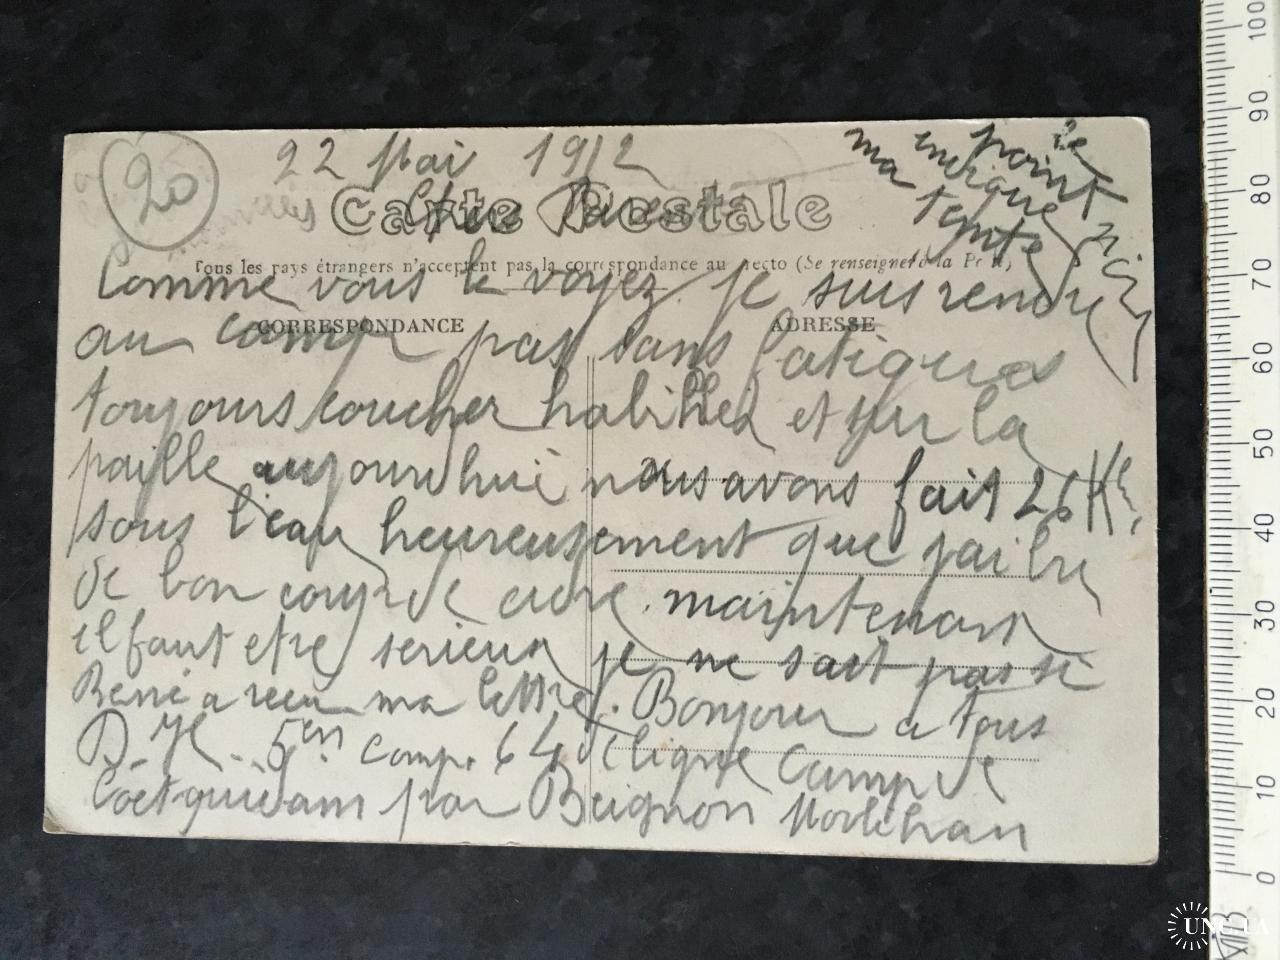 20
22 Mai 1912
Carte Postale
Tous les pays étrangers n'acceptent pas la correspondance au recto (Se renseigner à la Poste)
CORRESPONDANCE
ADRESSE
le point noir
indique
ma tente
Comme vous le voyez je suis rendu
au camp pas sans fatigues
toujours coucher habiller et sur la
paille aujourdhui nous avons fait 26 Kil,
sous l'eau heureusement que jai bu
de bon coup de cidre maintenant
il faut etre serieux je ne sait pas si
René a recu ma lettre. Bonjour a tous
D. H. 5en comp. 64 de ligne Camp de
Coëtquidam par Beignon Morbihan
100
90
80
70
60
50
40
30
20
10
0
UNC.UA